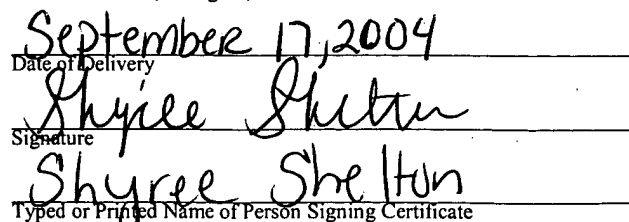 September 17, 2004
Date of Delivery
Shyree Shelton
Signature
Shyree Shelton
Typed or Printed Name of Person Signing Certificate